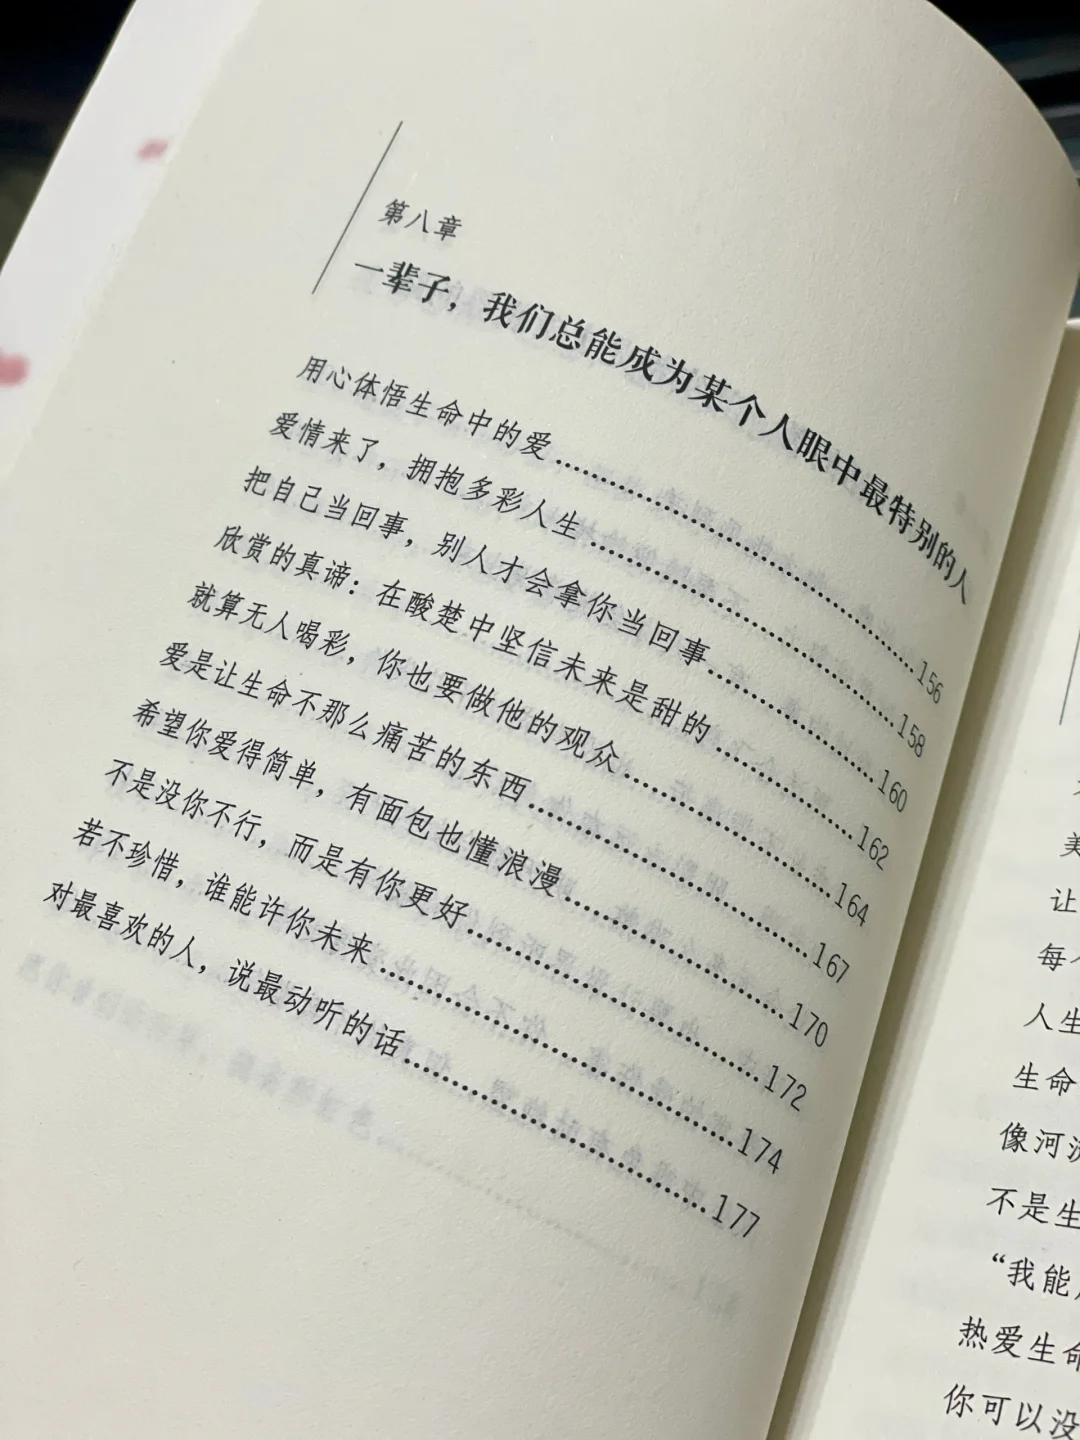 第八章
一辈子，我们总能成为某个人眼中最特别的人
用心体悟生命中的爱……156
爱情来了，拥抱多彩人生……158
把自己当回事，别人才会拿你当回事……160
欣赏的真谛：在酸楚中坚信未来是甜的……162
就算无人喝彩，你也要做他的观众……164
爱是让生命不那么痛苦的东西……167
希望你爱得简单，有面包也懂浪漫……170
不是没你不行，而是有你更好……172
若不珍惜，谁能许你未来……174
对最喜欢的人，说最动听的话……177
美
让
每个
人生
生命
像河流
不是生
“我能
热爱生命
你可以没